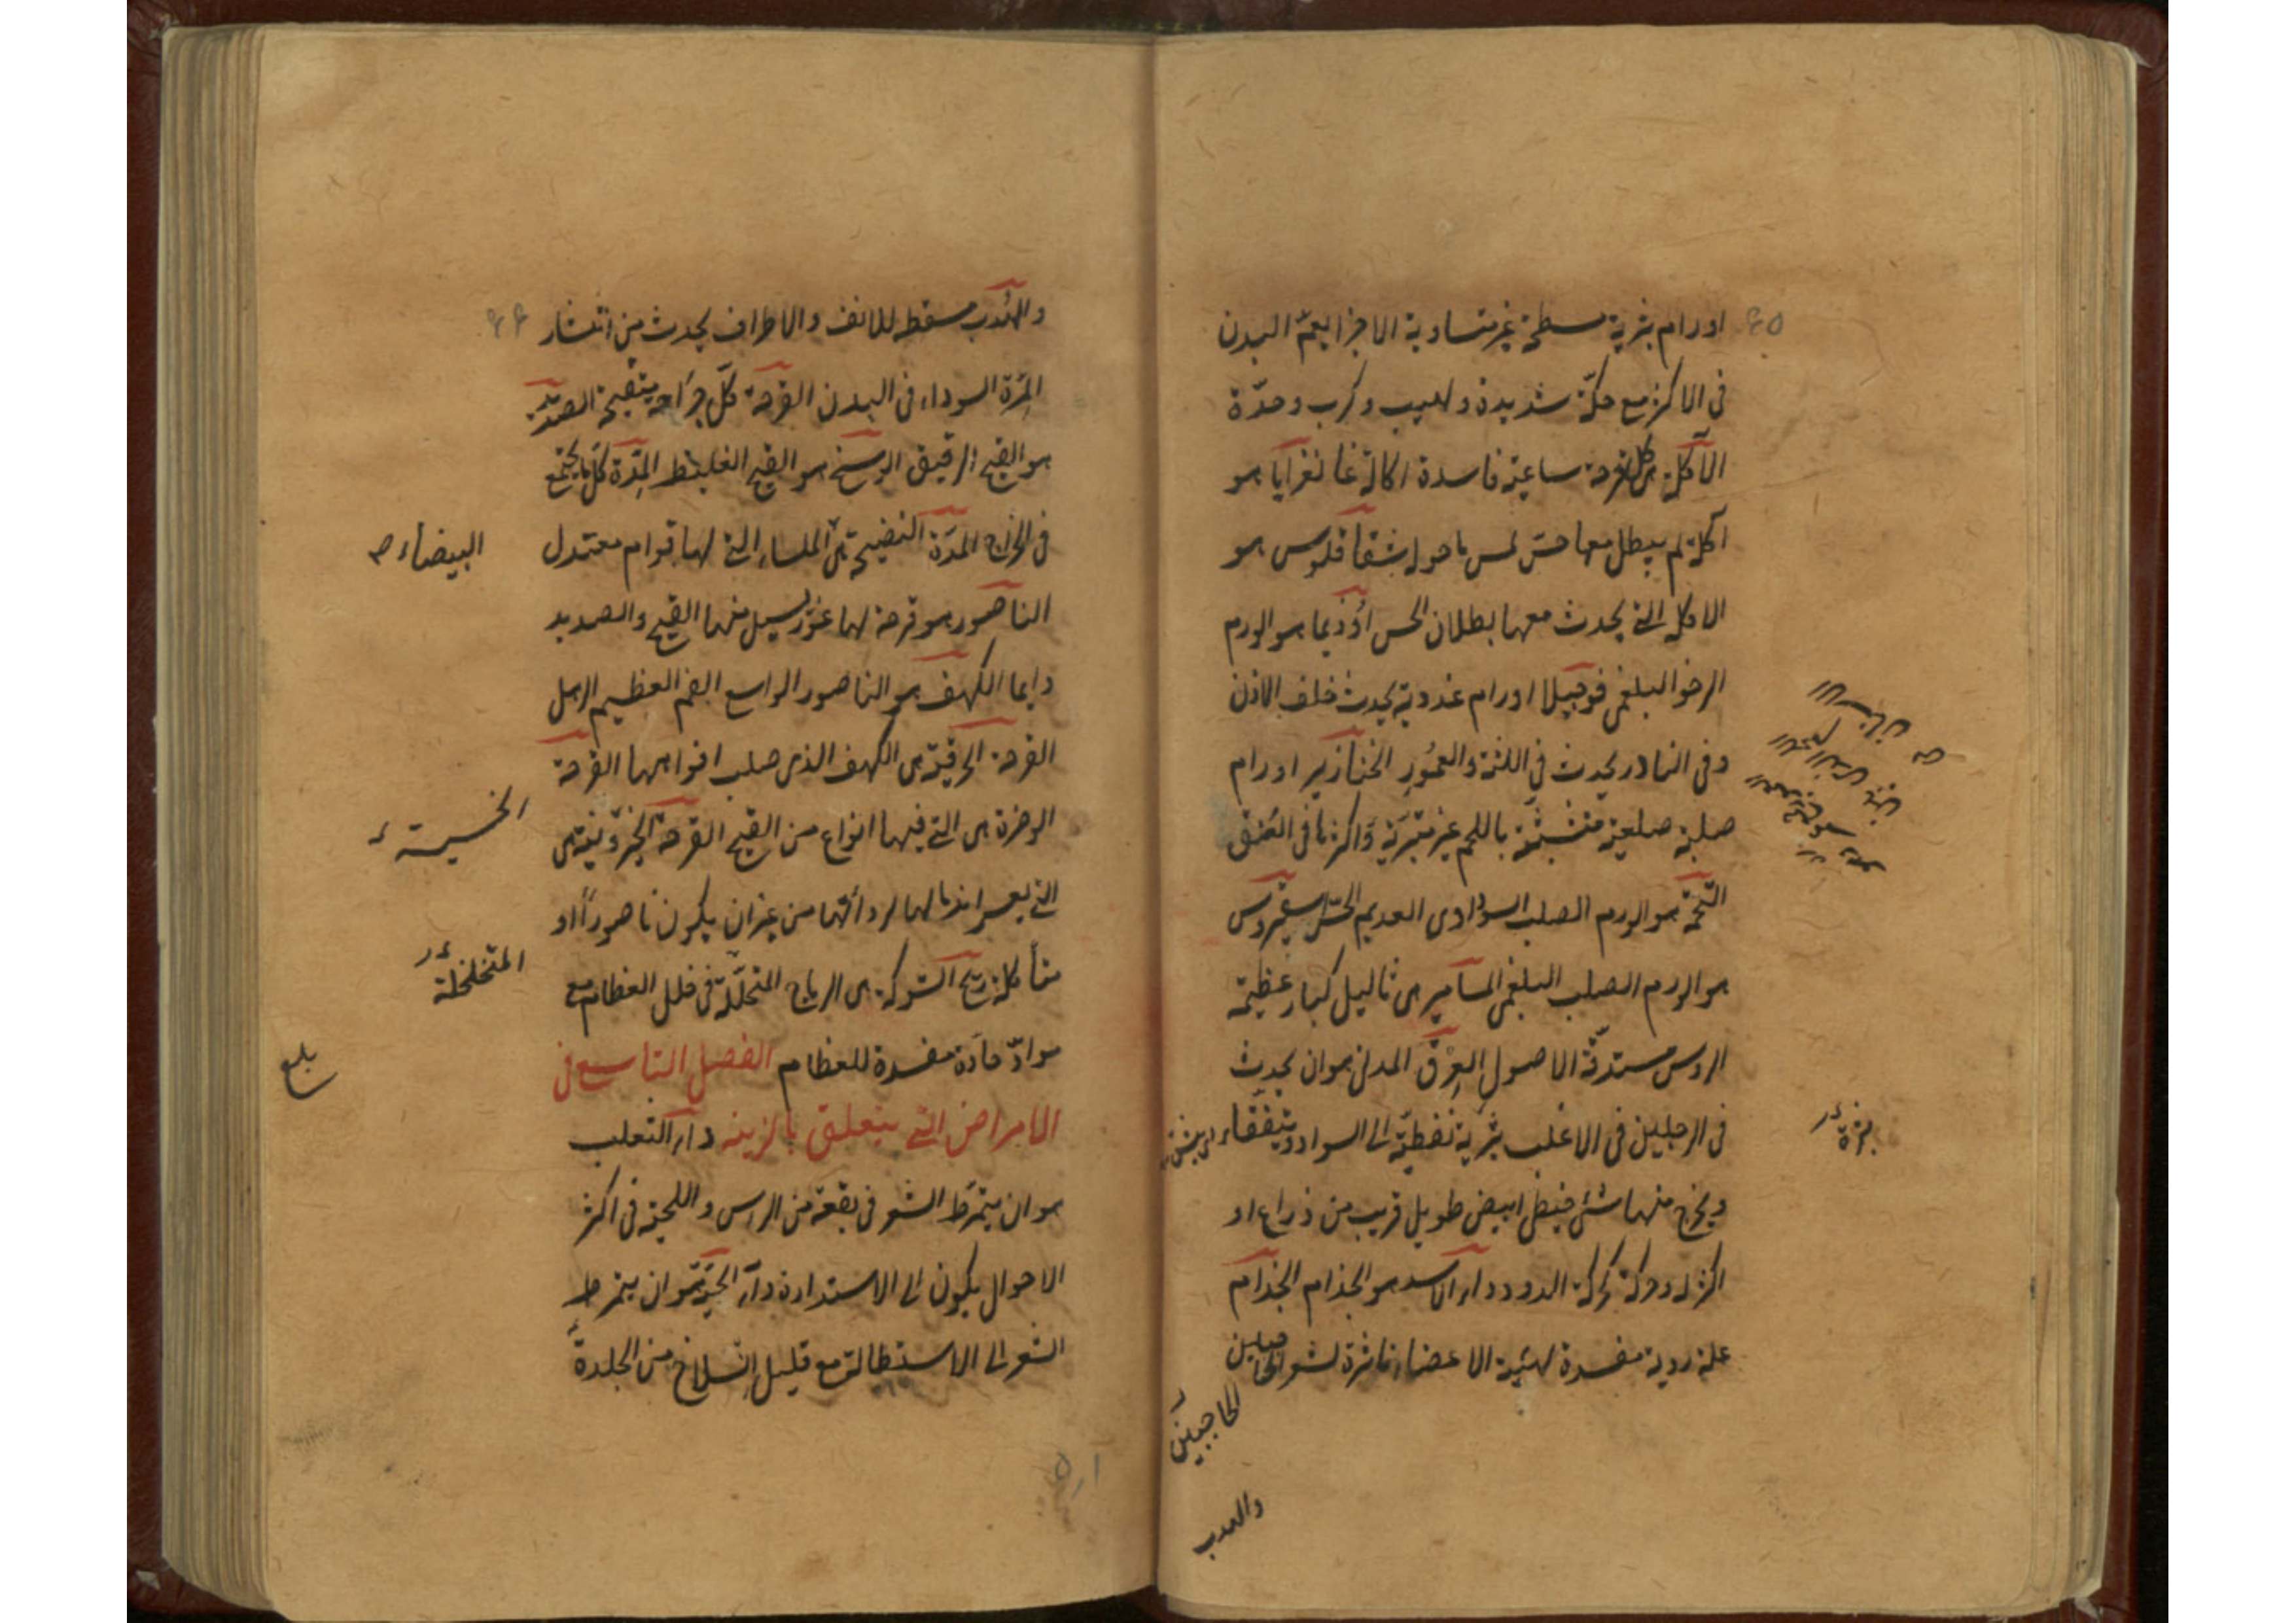 اورام بثرية مسطحة غير متساوية الاجزا يعمّ البدن
فى الاكثر مع حكّة شديدة ولهيب وكرب وحدّة
الآكلة هى كل قرحة ساعية فاسدة اكالة غانغرايا هو
آكلة لم يبطل معها حسّ لمس ما حوله شقاقلوس هو
الاكله التى يحدث معها بطلان الحس اوذيما هو الورم
الرخو البلغمى فوجيلا اورام غددية يحدث خلف الاذن
وفى النادر يحدث فى اللثة والعمُور الخنازير اورام
صلبة صلعية متشبثة باللحم غير متبرّية واكثرها فى العُنق
هو الورم الصلب السوداوى العديم الحسّ سقيروس
هو الورم الصلب البلغمى المسامير هى ثاليل كبار عظيمة
الروس مستدقّة الاصول العِرْق المدنى هو ان يحدث
فى الرجلين فى الاغلب بثرية نفطيّة الى السواد ويتفقاء
ويخرج منها شئ خيطى ابيض طويل قريب من ذراع او
اكثر له وحركة كركة الدود داء الاسد هو الجذام الجذام
علة ردية مفسدة لهيئة الاعضاء ناثرة لشعر
بثرة
الحاجبين
والهدب
والهُدب مسقطه للانف والاطراف يحدث من انتشار
المِرّة السوداء فى البدن القرحة كلّ جراحه يتقيح الصديد
هو القيح الرقيق الوسخ هو القيح الغليظ المِدّة كلّ ما يجتمع
فى الخراج المدّة النضيجة هى الملساء التى لها قوام معتدل
الناصور هو قرحة لها غور يسيل منها القيح والصديد
دايما الكهف هو الناصور الواسع الفم العظيم
القرحة هى الكهف الذى صلب افواهها القرحة
الوضرة هى التى فيها انواع من القيح القرحة الخيرونية هى
التى يعسر اندمالها لردائتها من غير ان يكون ناصوراً او
متأكلة ريح الشوكة هى الرياح المتخلّلة فى خلل العظام مع
موادّ حادّة مفسدة للعظام الفصل التاسع فى
الامراض التى يتعلق بالزينة داء الثعلب
هو ان يتمرّط الشعر فى بقعة من الراس واللحية فى اكثر
الاحوال يكون الى الاستدارة داء الحيّة هو ان يتمرط
الشعر الى الاستطالة مع قليل انسلاخ من الجلدة
البيضاء
المتخلخلة
بلغ